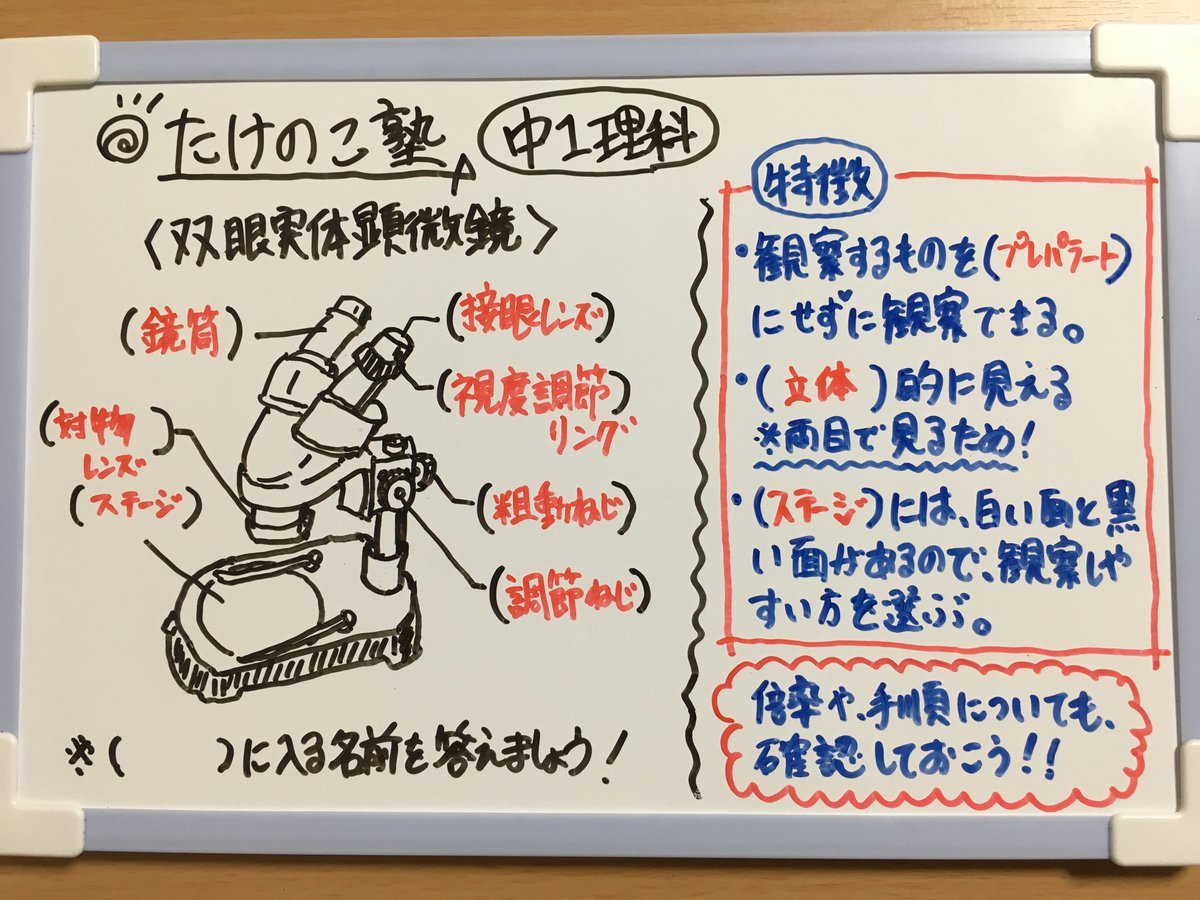 たけのこ塾
中1理科
〈双眼実体顕微鏡〉
(鏡筒)
(接眼レンズ)
(視度調節
リング)
(対物
レンズ)
(ステージ)
(粗動ねじ)
(調節ねじ)
※( )に入る名前を答えましょう!
特徴
・観察するものを(プレパラート)
にせずに観察できる。
・(立体)的に見える
※両目で見るため!
・(ステージ)には、白い面と黒
い面があるので、観察しや
すい方を選ぶ。
倍率や、手順についても、
確認しておこう!!